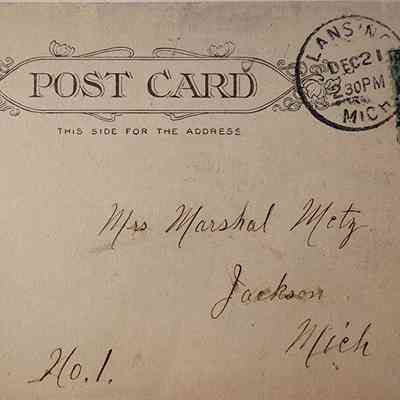 POST CARD
THIS SIDE FOR THE ADDRESS
LANSING
DEC 21
2 30PM
MICH
Mrs Marshal Metz
Jackson
Mich
No. 1.